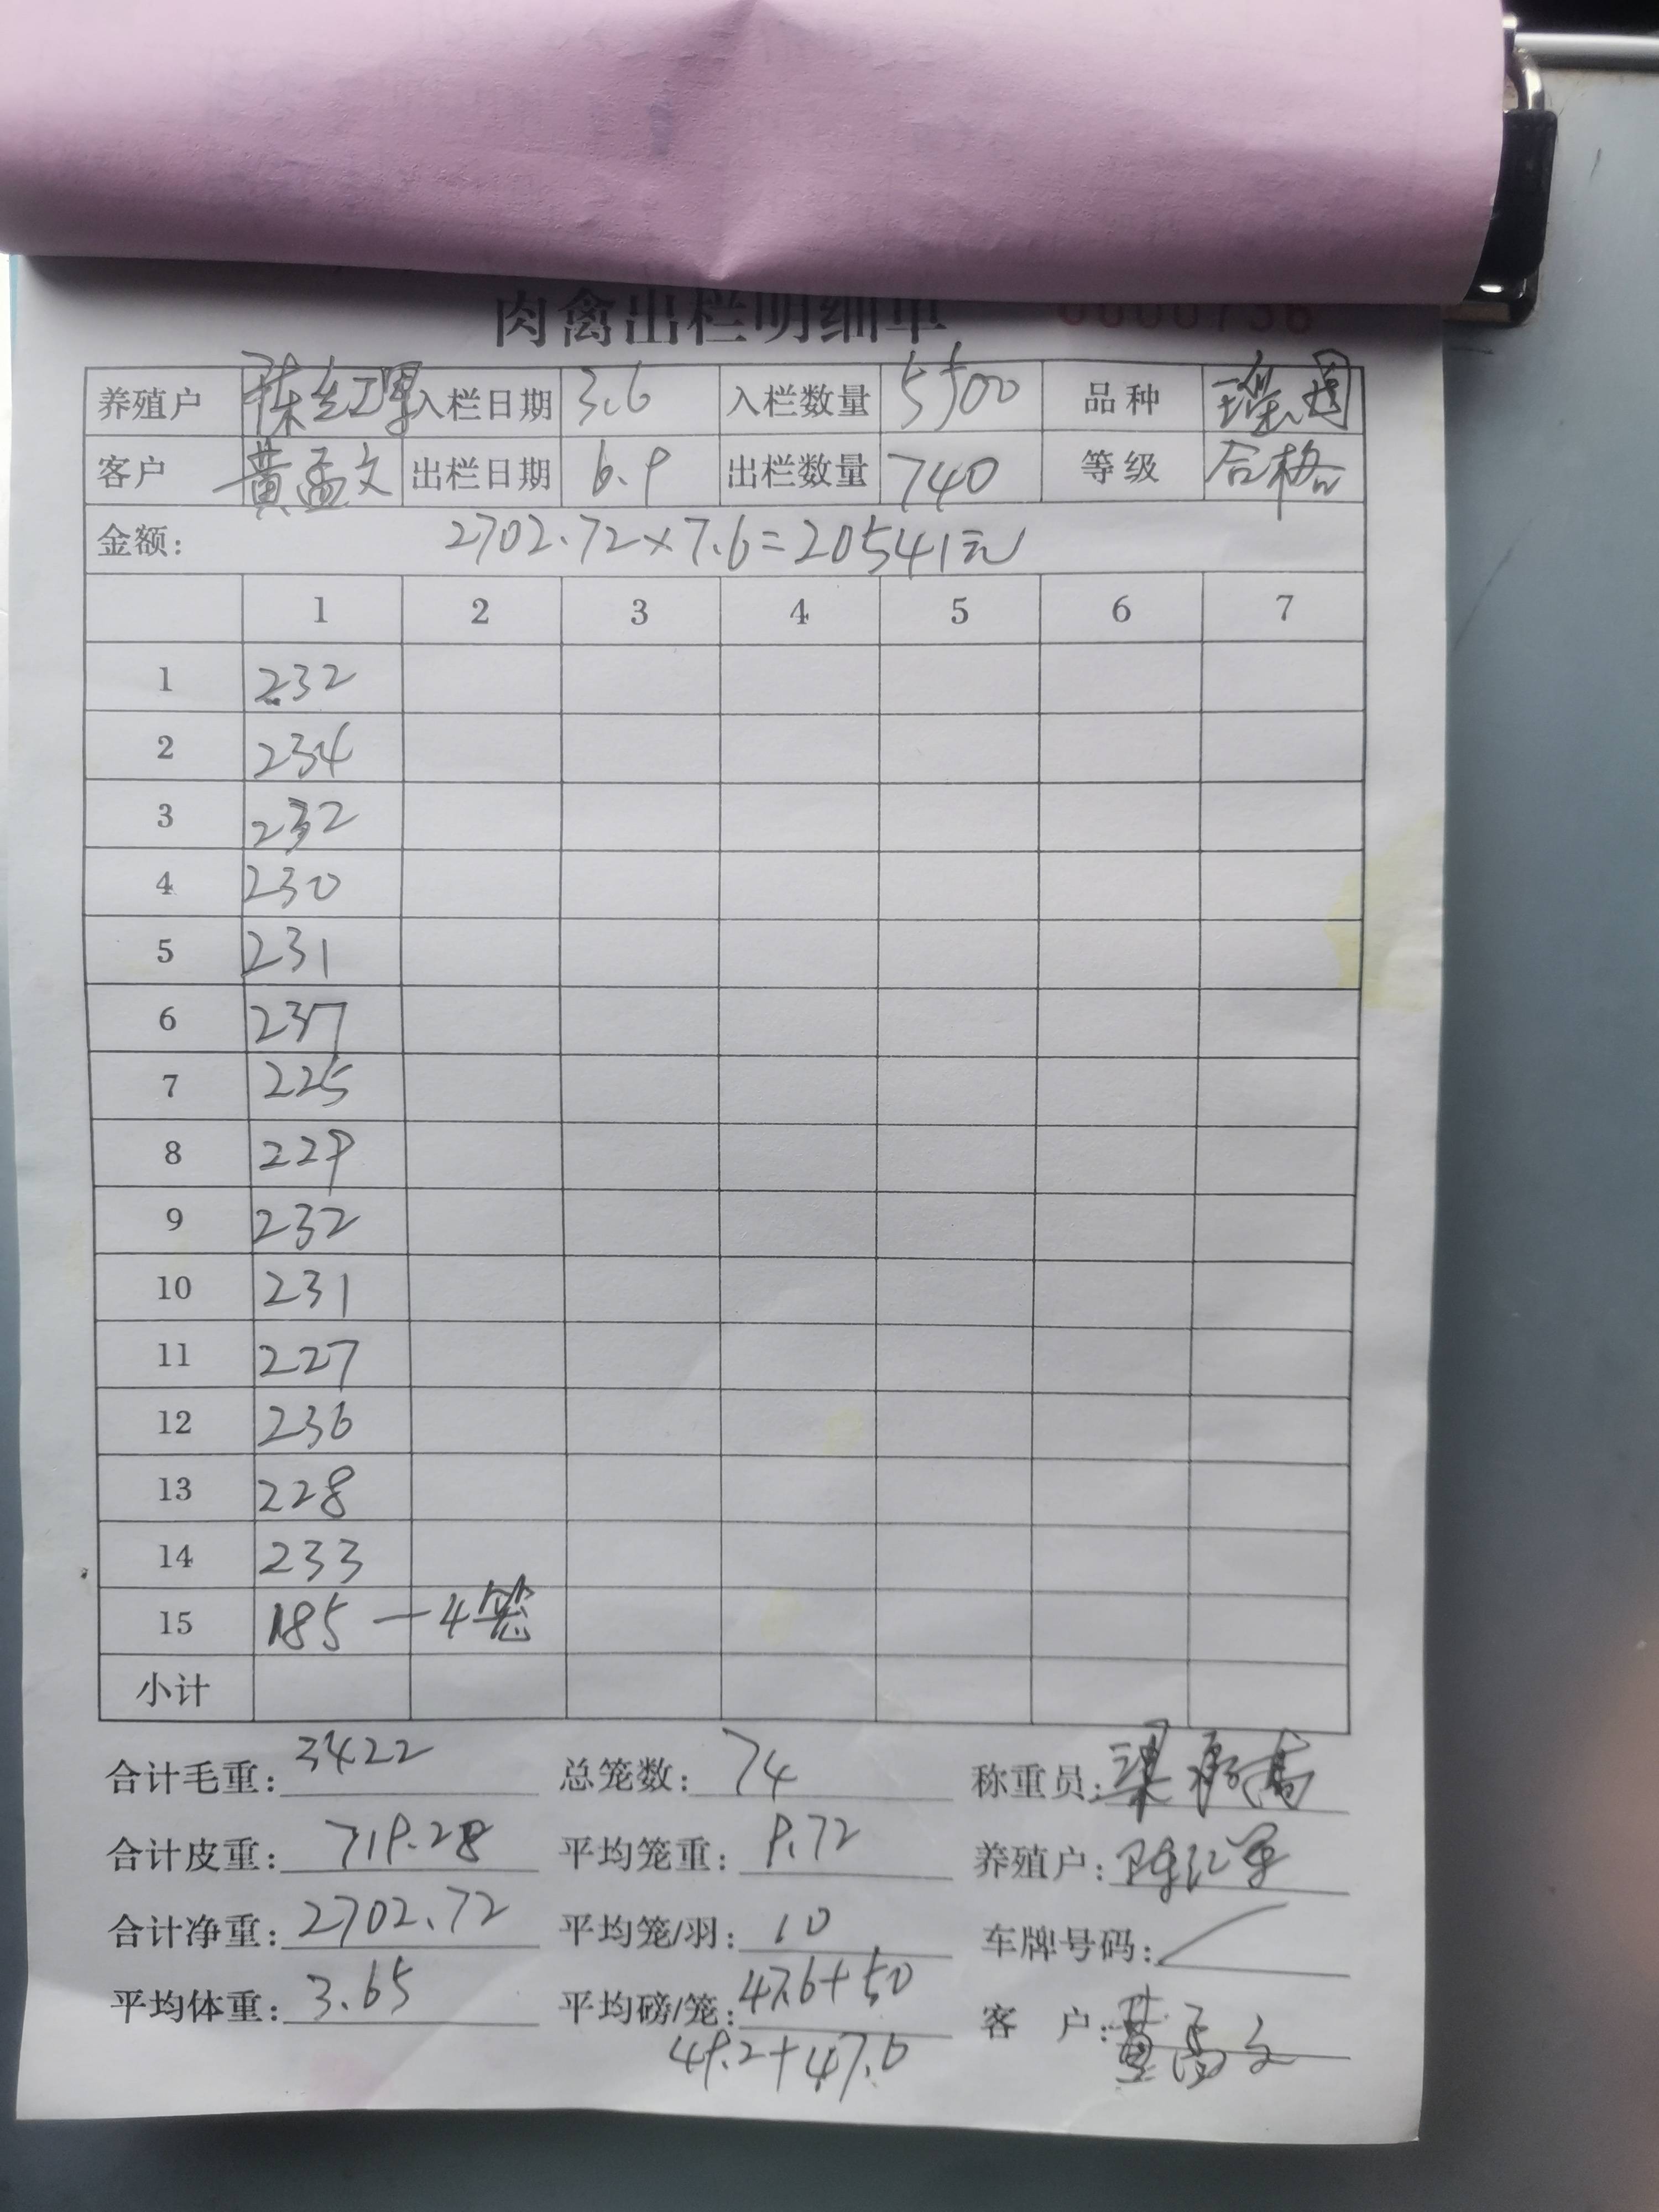 肉禽出栏明细单 0000736
养殖户 陈红军 入栏日期 3.6 入栏数量 5500 品种
客户 黄孟文 出栏日期 6.9 出栏数量 740 等级 合格
金额: 2702.72×7.6=20541元
1 2 3 4 5 6 7
1 232
2 234
3 232
4 230
5 231
6 237
7 225
8 229
9 232
10 231
11 227
12 236
13 228
14 233
15 185 — 4笼
小计
合计毛重: 3422 总笼数: 74 称重员: 梁
合计皮重: 719.28 平均笼重: 9.72 养殖户: 陈红军
合计净重: 2702.72 平均笼/羽: 10 车牌号码:
平均体重: 3.65 平均磅/笼: 47.6+50 客 户: 黄孟文
49.2+47.6